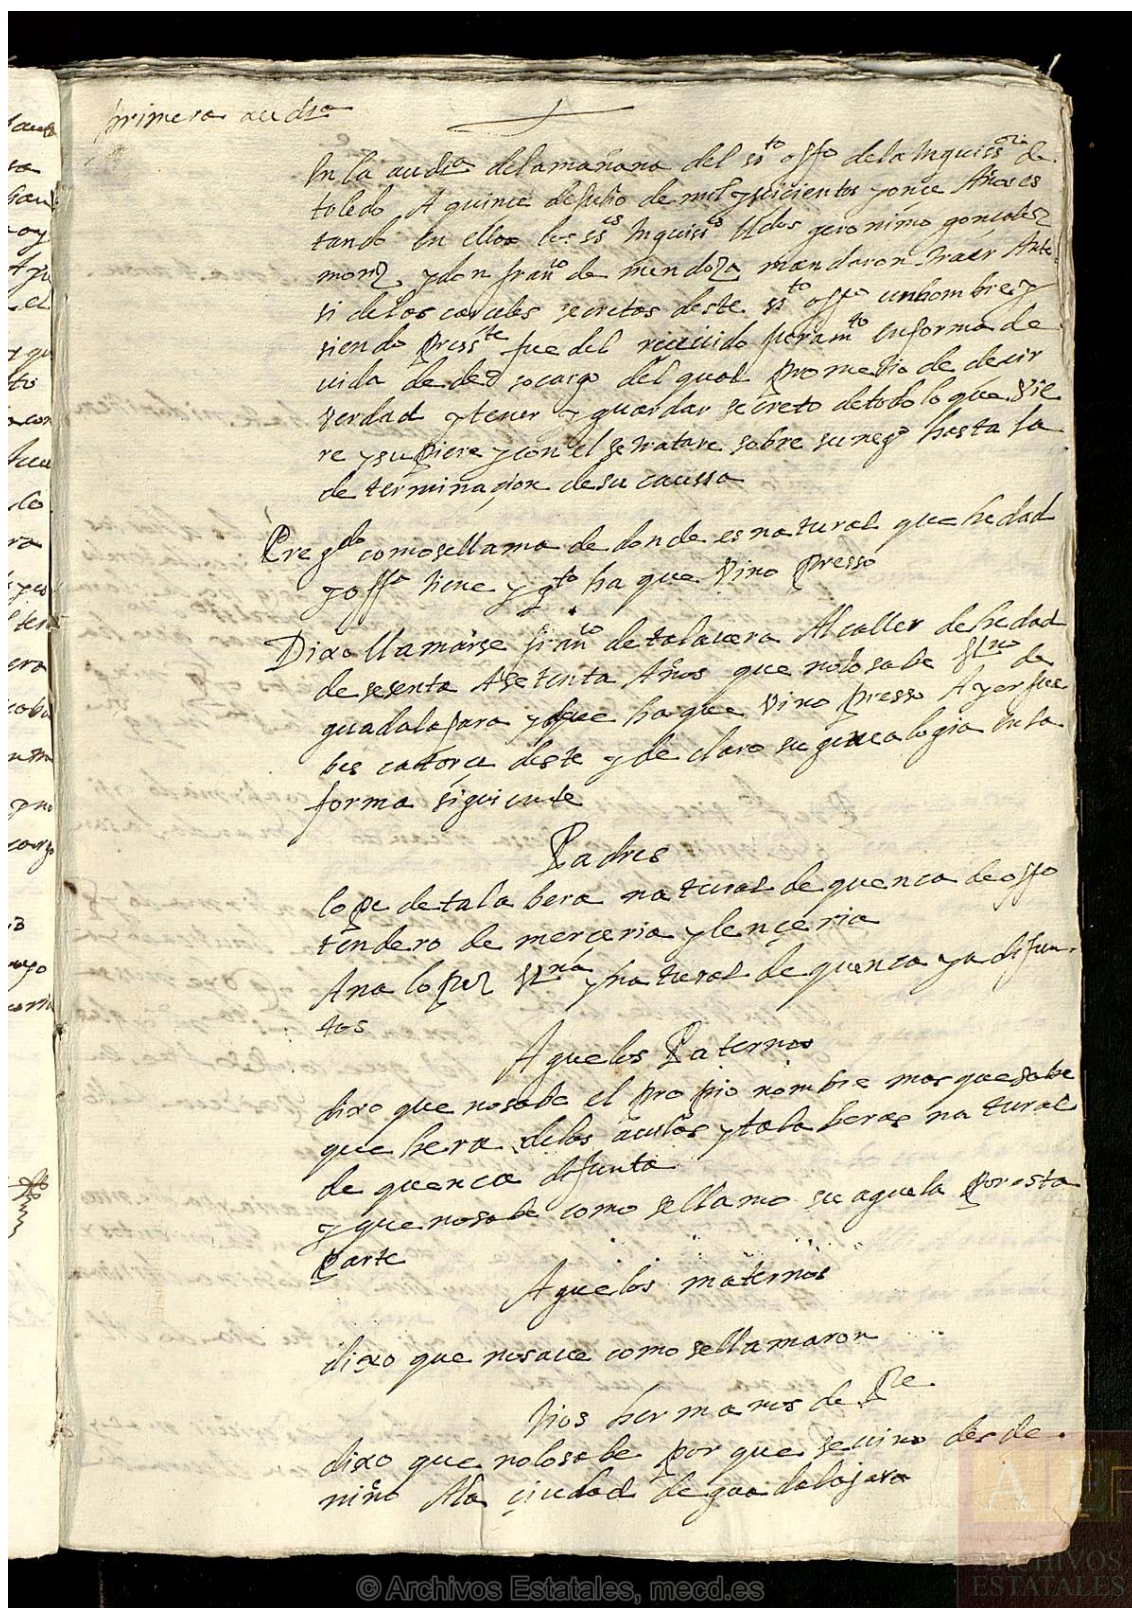 primera aud.ª
En la aud.ª de la mañana del s.to offo de la Inquiss.on de
toledo A quince de Julio de mil y seicientos y once Años es
tando En ella los ss.es Inquiss.es llcdos geronimo gonçalez
y don fran.co de mendoza mandaron traer Ante
si de las carceles secretas deste s.to offo un hombre y
siendo press.te fue del reciuido juram.to en forma de
uida de der.o so cargo del qual prometio de decir
verdad y tener y guardar secreto de todo lo que vie
re y supiere y con el se tratare sobre su neg.o hasta la
determinaçion de su caussa
Preg.do como se llama de donde es natural que hedad
y offo tiene y q.to ha que vino presso
Dixo llamarse fran.co de talauera Alcaller de hedad
de sesenta A setenta Años que no lo sabe v.no de
guadalajara y que ha que vino presso Ayer jue
bes catorçe deste y declaro su genealogia en la
forma siguiente
Padres
lope de talabera natural de quenca de offo
tendero de merceria y lençeria
Ana lopez v.na y natural de quenca ya difun-
tos
Aguelos Paternos
dixo que no sabe el propio nombre mas que sabe
que hera de los y talaberas natural
de quenca difunta
y que no sabe como se llamo su aguela por esta
parte
Aguelos maternos
dixo que no saue como se llamaron
tios hermanos de P.e
dixo que no lo sabe por que se uino desde
niño A la çiudad de guadalajara
© Archivos Estatales, mecd.es
ARCHIVOS
ESTATALES